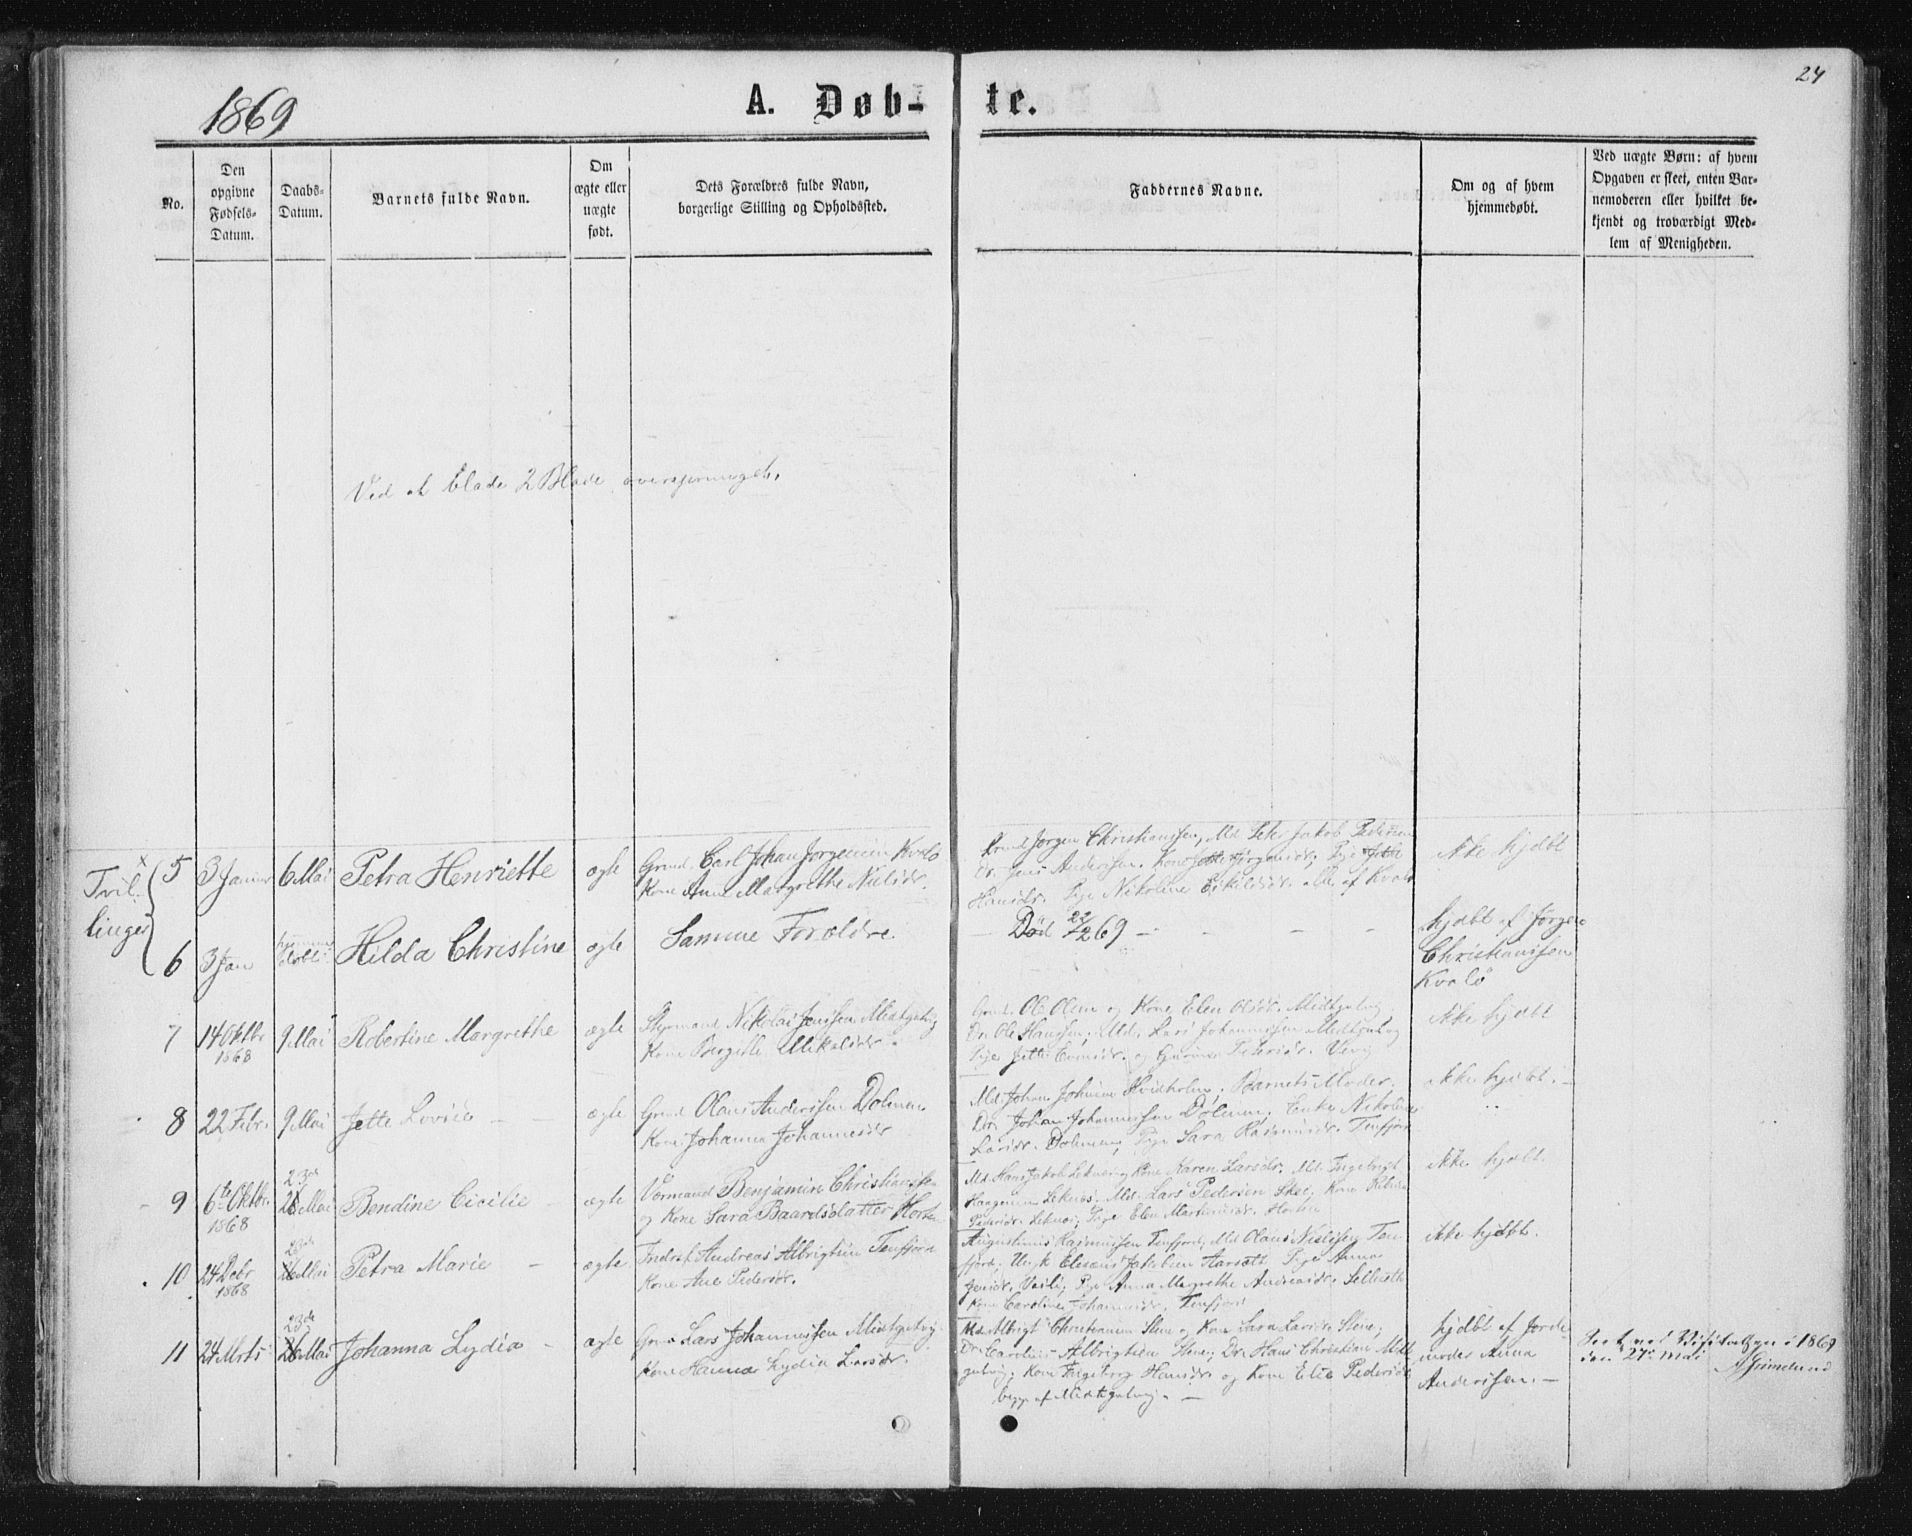 24
1869
A. Døb-
te.
No.
Den
opgivne
Fødsels-
Datum.
Daabs-
Datum.
Barnets fulde Navn.
Om
ægte eller
uægte
født.
Dets Forældres fulde Navn,
borgerlige Stilling og Opholdssted.
Faddernes Navne.
Om og af hvem
hjemmedøbt.
Ved uægte Børn: af hvem
Opgaven er skeet, enten Bar-
nemoderen eller hvilket be-
kjendt og troværdigt Med-
lem af Menigheden.
Ved at blade 2 Blade oversprunget.
Tvil-
linger
5
3 Januar
6 Mai
Petra Henriette
ægte
Carl Johan Jørgensen Kvalø
Kone Ane Margrethe Nielsdr.
Jørgen Christianssen, Md. Peter Jakob Pedersen
Dr. Jens Anderssen, Kone Jørgensdr, Pige
Hansdr. Pige Nikoline Eskildsdr. alle af Kvalø
ikke hjdbt
6
3 Jan
Hilda Christine
ægte
Samme Forældre.
Død 22/2 69
hjdbt af Jørgen
Christianssen
Kvalø
7
14 Oktbr
1868
9 Mai
Robertine Margrethe
ægte
Styrmand Nikolai Jenssen Midtgutvig
Kone Bergitte Mikalsdr.
Ole Olsen og Kone Elen Olsdr. Midtgutvig
Dr. Ole Hanssen; Md. Lars Johannessen Midtgutvig
Pige Jette og Gurine Pedersdr.
ikke hjdbt
8
22 Febr.
9 Mai
Jette Lovise
ægte
Olaus Anderssen Dolmen
Kone Johanna Johannesdr
Md. Johan Barnets Moder;
Dr. Johan Johannessen Dolmen. Enke Nikoline
Larsdr. Dolmen, Pige Sara Rasmusdr. Tenfjord
ikke hjdbt.
9
6te Oktbr.
1868
23de
Mai
Bendine Cicilie
ægte
Benjamin Christianssen
og Kone Sara Baardsdatter Horten
Md. Hans Jakob Leknes og Kone Karen Larsdr. Md. Ingebrigt
Leknes. Md. Lars Pedersen Skei, Kone
Pedersdr. Leknes; Pige Elen Horten
ikke hjdbt.
10
24 Debr
1868
23de
Mai
Petra Marie
ægte
Andreas Albrigtsen Tenfjord
Kone Ane Pedersdr.
Augustinus Rasmussen Tenfjord, Md. Olaus Nielssen Ten
fjord; Jakobsen Aarsæt. Pige Anna
Jensdr. Pige Anna Margrethe Andreasdr.
Kone Caroline Johannesdr. Tenfjord
ikke hjdbt.
11
24 Mrts
23de
Mai
Johanna Lydia
ægte
Lars Johannessen Midtgutvig.
Kone Hanna Lydia Larsdr.
Md. Albrigt Christiansen Stene og Kone Sara Larsdr. Stene;
Dr. Carolius Albrigtsen Stene; Dr. Hans Christian Midt
gutvig; Kone Ingeborg Hansdr. og Kone Elia Pedersdr,
begge af Midtgutvig.
hjdbt af Jorde-
moder Anna
Anderssen.
Seet ved Visitatsen i 1869
den 27de Mai
A Grimelund